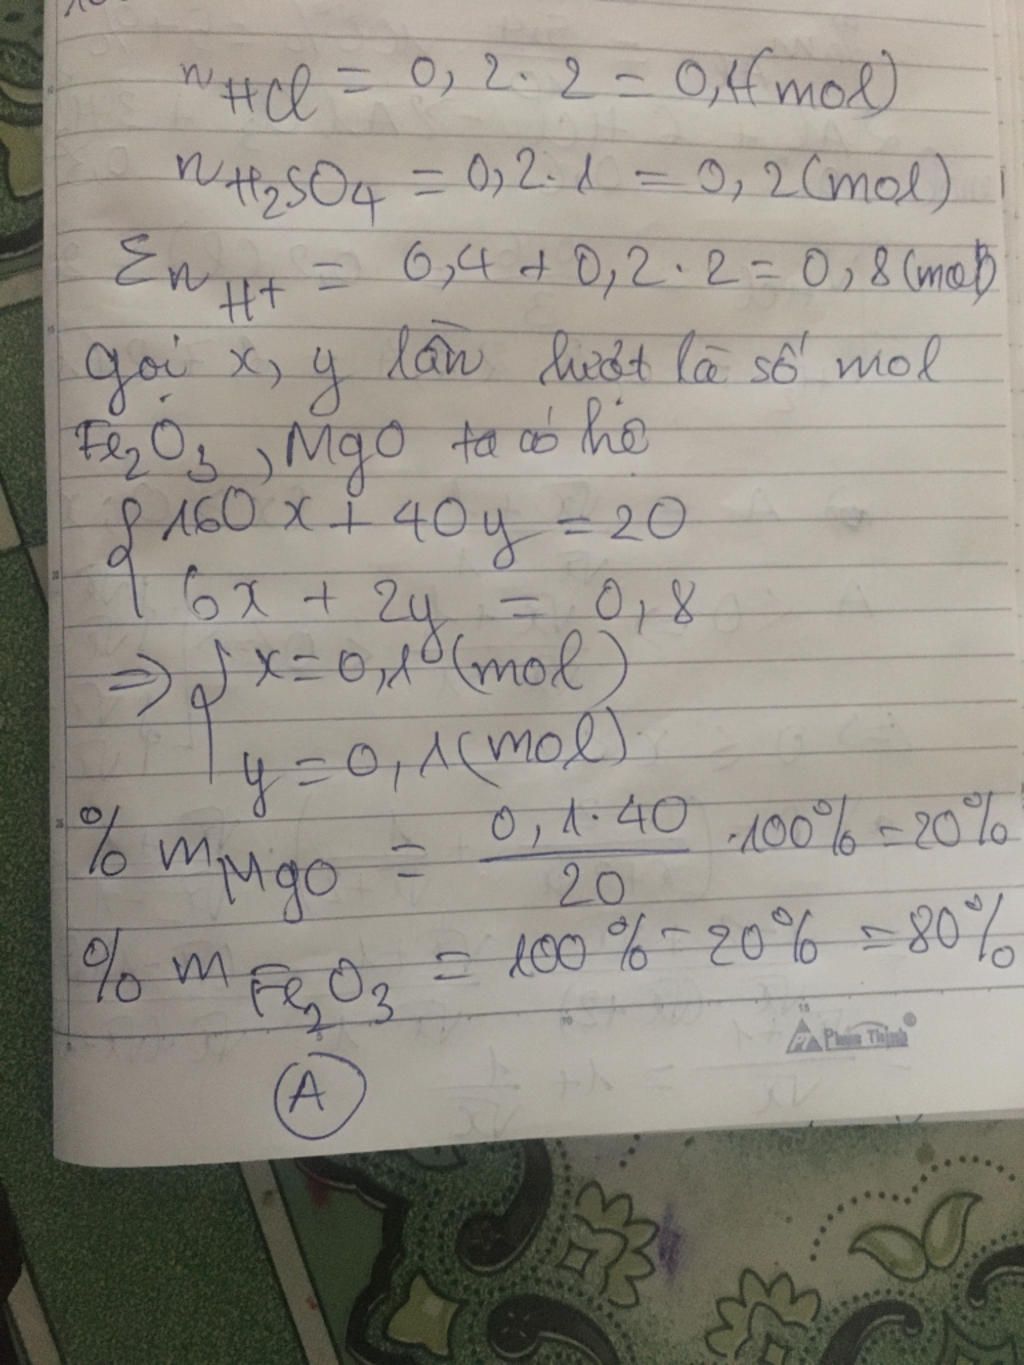 n HCl = 0,2.2 = 0,4(mol)
n H2SO4 = 0,2.1 = 0,2(mol)
Σn H+ = 0,4 + 0,2.2 = 0,8(mol)
gọi x, y lần lượt là số mol
Fe2O3, MgO ta có hệ
{ 160x + 40y = 20
6x + 2y = 0,8
=> { x = 0,1 (mol)
y = 0,1(mol)
% m MgO = 0,1.40 / 20 .100% = 20%
% m Fe2O3 = 100% - 20% = 80%
Phuon Thinh
A